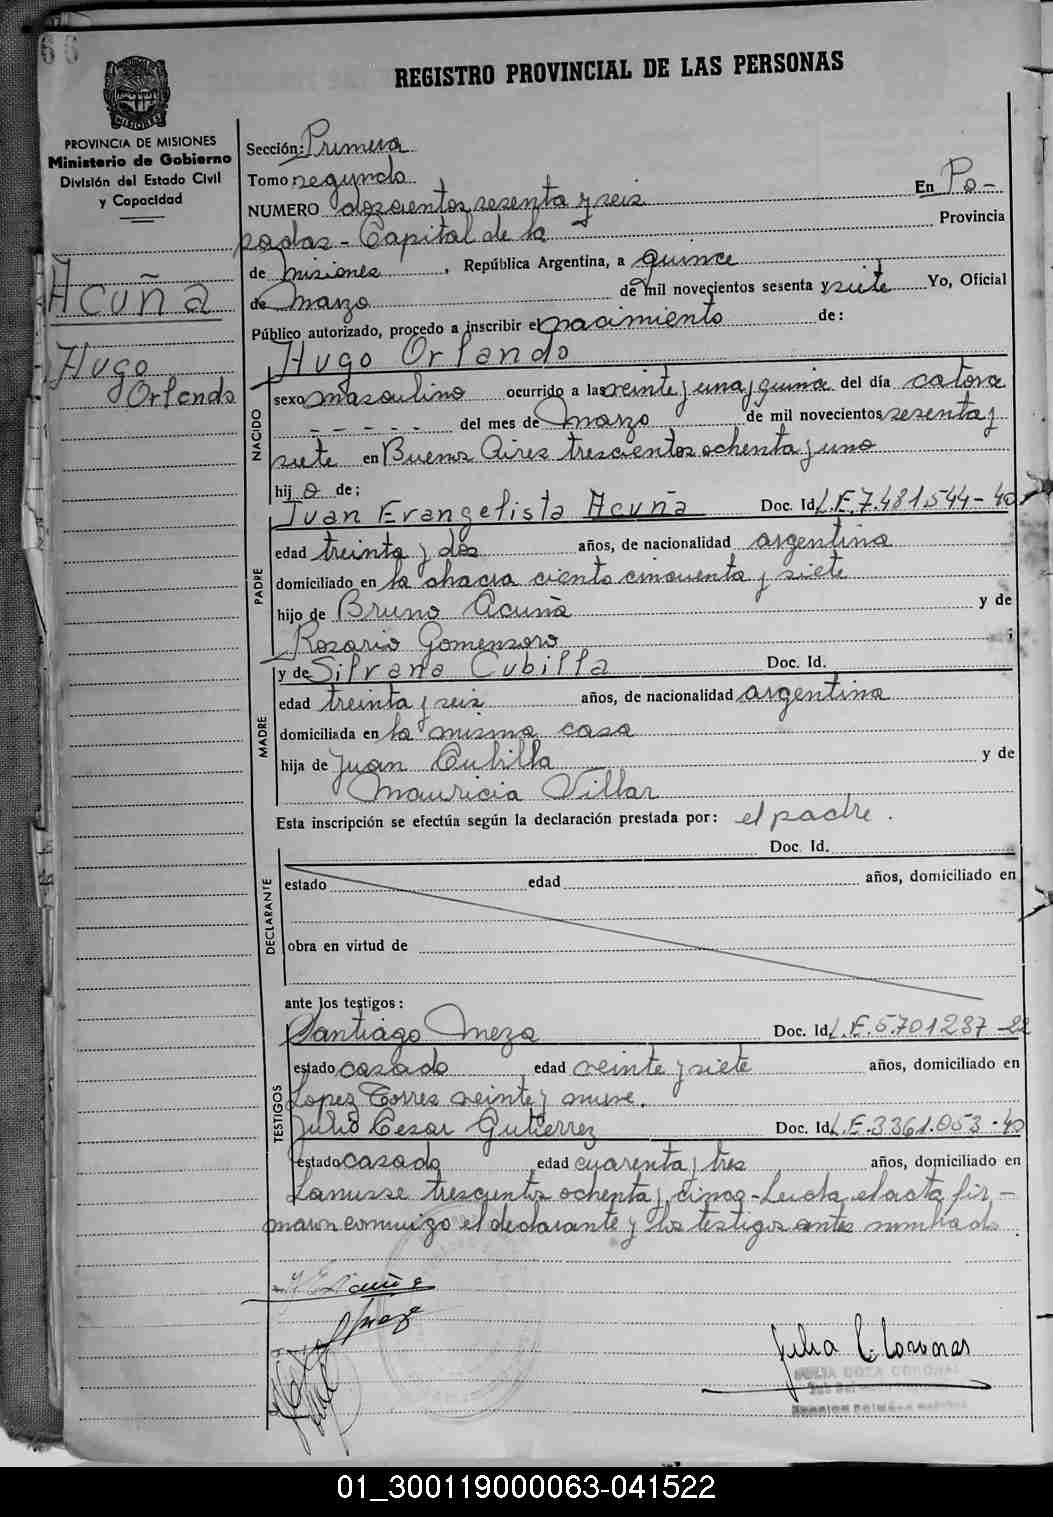 66
REGISTRO PROVINCIAL DE LAS PERSONAS
MISIONES
PROVINCIA DE MISIONES
Ministerio de Gobierno
División del Estado Civil
y Capacidad
Acuña
Hugo
Orlando
Sección: Primera
Tomo segundo
NUMERO doscientos sesenta y seis En Po-
sadas - Capital de la Provincia
de misiones, República Argentina, a quince
de Marzo de mil novecientos sesenta y siete Yo, Oficial
Público autorizado, procedo a inscribir el nacimiento de:
Hugo Orlando
NACIDO
sexo masculino ocurrido a las veinte y una y quince del día catorce
- - - - - del mes de Marzo de mil novecientos sesenta y
siete en Buenos Aires trescientos ochenta y uno
hijo de:
Juan Evangelista Acuña Doc. Id. L.E.7.481.544-40
PADRE
edad treinta y dos años, de nacionalidad argentina
domiciliado en la chacra ciento cincuenta y siete
hijo de Bruno Acuña y de
Rosario Gomensoro ;
y de Silvana Cubilla Doc. Id.
MADRE
edad treinta y seis años, de nacionalidad argentina
domiciliada en la misma casa
hija de Juan Cubilla y de
Mauricia Villar
Esta inscripción se efectúa según la declaración prestada por: el padre.
Doc. Id.
DECLARANTE
estado edad años, domiciliado en
obra en virtud de
ante los testigos:
Santiago Meza Doc. Id. L.E.5.701287-22
TESTIGOS
estado casado edad veinte y siete años, domiciliado en
Lopez Torres veinte y nueve.
Julio Cesar Gutierrez Doc. Id. L.E.3361.053-40
estado casado edad cuarenta y tres años, domiciliado en
Lanusse trescientos ochenta y cinco - Leida el acta fir-
maron conmigo el declarante y los testigos antes nombrado.
Acuña
Meza
Julia C. Coronas
01_300119000063-041522